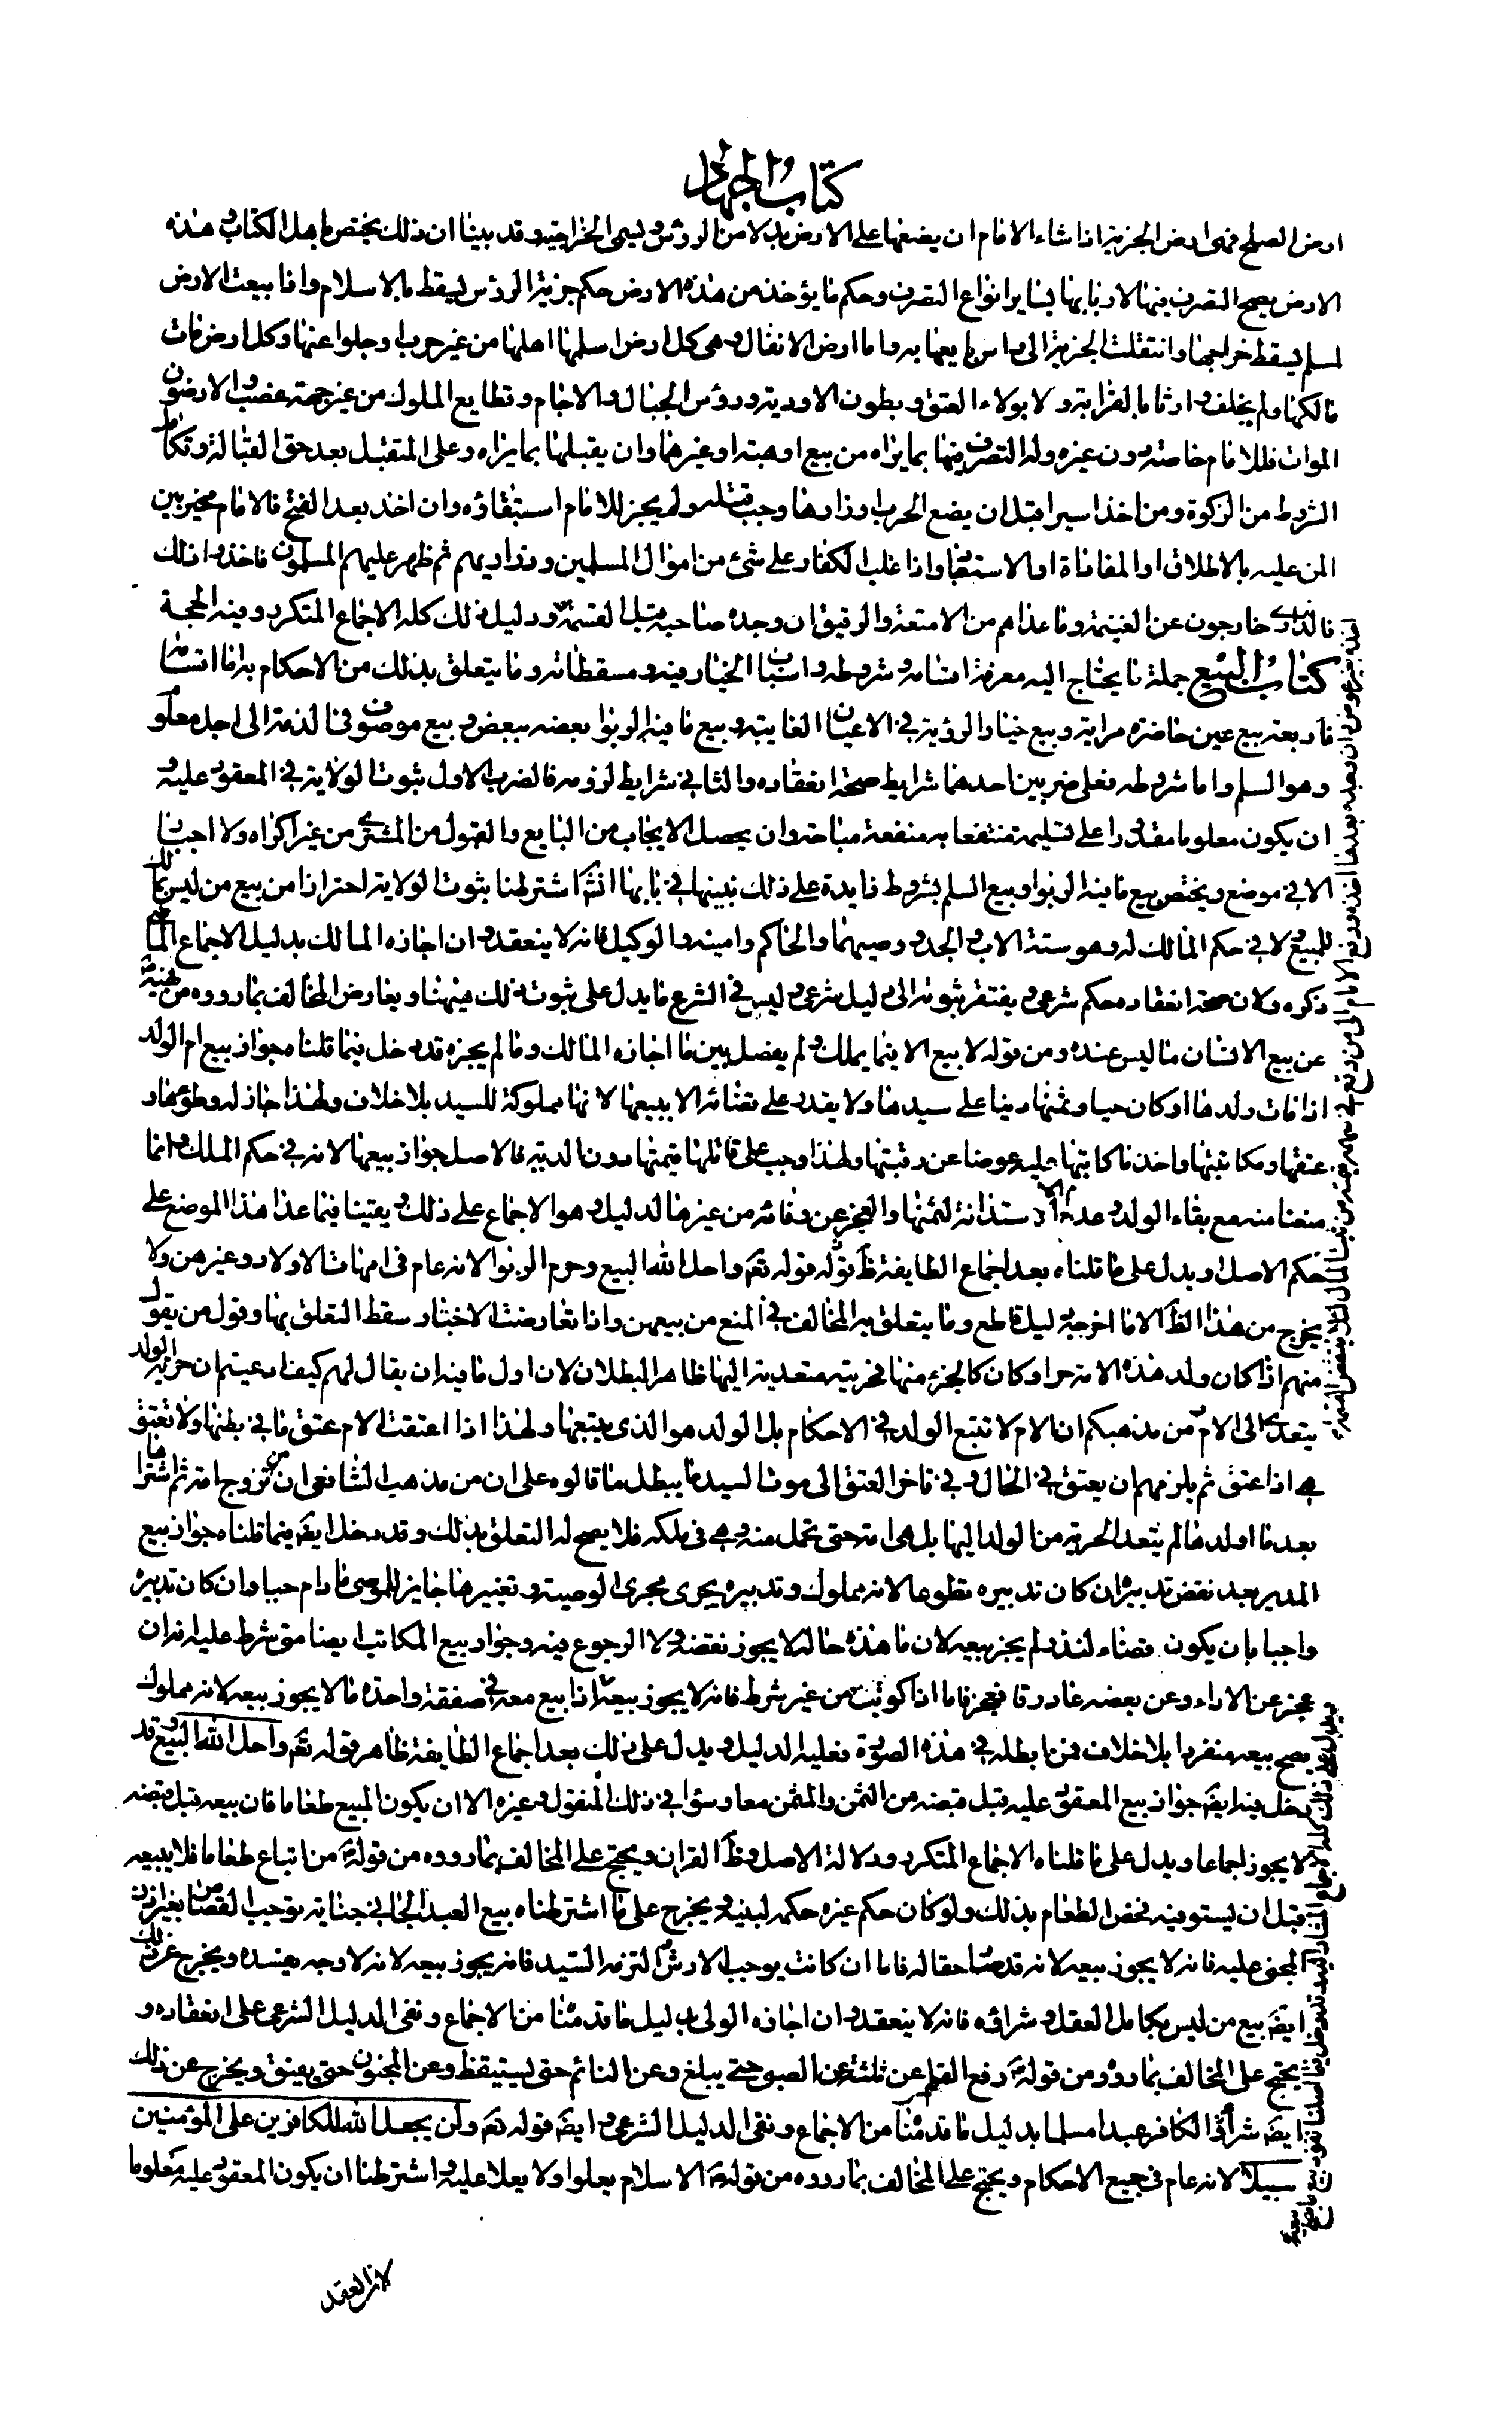 كتاب الجهاد
ارض الصلح فهى ارض الجزية اذا شاء الامام ان يضعها على الارض بدلا من الرؤس وليسمى الخراجية وقد بينا ان ذلك يختص باهل الكتاب وهذه
الارض يصح التصرف فيها لاربابها بساير انواع التصرف وحكم ما يؤخذ من هذه الارض حكم جزية الرؤس ليسقط بالاسلام واذا بيعت الارض
لمسلم يسقط خراجها وانتقلت الجزية الى راس بايعها به واما ارض الانفال وهى كل ارض اسلمها اهلها من غير حرب او جلوا عنها وكل ارض مات
مالكها ولم يخلف وارثا بالقرابة ولا بولاء العتق وبطون الاودية ورؤس الجبال والاجام وقطايع الملوك من غير جهة غصب والارضون
الموات فللامام خاصة دون غيره وله التصرف فيها بما يراه من بيع او هبة او غيرهما وان يقبلها بما يراه وعلى المتقبل بعد حق القبالة وتكامل
الشروط من الزكوة ومن اخذ اسيرا قبل ان يضع الحرب اوزارها وجب قتله ولم يجز للامام استبقاؤه وان اخذ بعد الفتح فالامام مخير بين
المن عليه بالاطلاق او المفاداة او الاستبقاء واذا غلب الكفار على شئ من اموال المسلمين وذراريهم ثم ظهر عليهم المسلمون فاخذوا ذلك
فالذرارى خارجون عن الغنيمة وما عداهم من الامتعة والرقيق ان وجده صاحبه قبل القسمة ودليل ذلك كله الاجماع المتكرر وفيه الحجة
كتاب البيع جملة ما يحتاج اليه معرفة اقسامه وشروطه واسباب الخيار فيه ومسقطاته وما يتعلق بذلك من الاحكام به اما اقسامه
فاربعة بيع عين حاضرة مرابة وبيع خيار الرؤية فى الاعيان الغايبة وبيع ما فيه الربوا بعضه ببعض وبيع موصوف فى الذمة الى اجل معلوم
وهو السلم واما شروطه فعلى ضربين احدهما شرايط صحة انعقاده والثانى شرايط لزومه فالضرب الاول ثبوت الولاية فى المعقود عليه و
ان يكون معلوما مقدورا على تسليمه منتفعا به منفعة مباحة وان يحصل الايجاب من البايع والقبول من المشترى من غير اكراه ولا اجبار
الا فى موضع ويختص بيع ما فيه الربوا وبيع السلم بشروط زايدة على ذلك نبينها فى بابها انش اشترطنا ثبوت الولاية احترازا من بيع من ليس بمالك
للمبيع ولا فى حكم المالك له وهو ستة الاب والجد ووصيهما والحاكم وامينه والوكيل فانه لا ينعقد وان اجازه المالك بدليل الاجماع الماضى
ذكره ولان صحة انعقاده حكم شرعى يفتقر ثبوته الى دليل شرعى وليس فى الشرع ما يدل على ثبوت ذلك هيهنا ويعارض المخالف بما رووه من نهيه
عن بيع الانسان ما ليس عنده ومن قوله لا بيع الا فيما يملك ولم يفصل بين ما اجازه المالك وما لم يجزه قد دخل فيما قلناه جواز بيع ام الولد
اذا مات ولدها او كان حيا وثمنها دينا على سيدها ولا يقدر على قضائه الا ببيعها لانها مملوكة للسيد بلا خلاف ولهذا جاز له وطؤها و
عتقها ومكاتبتها واخذ ما كاتبها عليه عوضا عن رقبتها ولهذا وجب على قاتلها قيمتها دون الدية فالاصل جواز بيعها لانه فى حكم الملك وانما
منعنا منه مع بقاء الولد وعدم الاستدانة لثمنها والعجز عن وفائه من غيرها لدليل وهو الاجماع على ذلك وبقينا فيما عدا هذا الموضع على
حكم الاصل ويدل على ما قلناه بعد اجماع الطايفة ظ قوله قوله تعم واحل الله البيع وحرم الربوا لانه عام فى امهات الاولاد وغيرهن ولا
يخرج من هذا الظ الا ما اخرجه دليل قاطع وما يتعلق به المخالف فى المنع من بيعهن واذا تعارضت الاخبار سقط التعلق بها وقول من يقول
منهم اذا كان ولد هذه الامة حرا وكان كالجزء منها فحريته متعدية اليها ظاهر البطلان لان اول ما فيه ان يقال لهم كيف ادعيتم ان حرية الولد
يتعدى الى الام ومن مذهبكم ان الام لا تتبع الولد فى الاحكام بل الولد هو الذى يتبعها ولهذا اذا اعتقت الام عتق ما فى بطنها ولا تعتق
هى اذا عتق ثم يلزمهم ان يعتق فى الحال وفى تاخر العتق الى موت السيد ما يبطل ما قالوه على ان من مذهب الشافعى ان من تزوج امة ثم اشتراها
بعد ما اولدها لم يتعد الحرية من الولد اليها بل هى امة حتى تحمل منه وهى فى ملكه فلا يصح له التعلق بذلك وقد دخل ايضم فيما قلناه جواز بيع
المدبر بعد نقض تدبيره ان كان تدبيره تطوعا لانه مملوك وتدبيره يجرى مجرى الوصية وتغييرها جايز للموصى ما دام حيا وان كان تدبيره
واجبا بان يكون قضاء لنذر لم يجز بيعه لان ما هذه حاله لا يجوز نقضه ولا الرجوع فيه وجواز بيع المكاتب ايضا متى شرط عليه انه ان
عجز عن الاداء وعن بعضه عاد رقا فعجز فاما اذا كوتب من غير شرط فانه لا يجوز بيعه اذا بيع معه فى صفقة واحدة ما لا يجوز بيعه لانه مملوك
يصح بيعه منفردا بلا خلاف فمن ابطله فى هذه الصورة فعليه الدليل ويدل على ذلك بعد اجماع الطايفة ظاهر قوله تعم واحل الله البيع وقد
دخل فيه ايضم جواز بيع المعقود عليه قبل قبضه من الثمن والمثمن معا وسواء فى ذلك المنقول وغيره الا ان يكون المبيع طعاما فان بيعه قبل قبضه
لا يجوز اجماعا ويدل على ما قلناه الاجماع المتكرر ودلالة الاصل وظ القران ويحتج على المخالف بما رووه من قوله من ابتاع طعاما فلا يبيعه
قبل ان يستوفيه فخص الطعام بذلك ولو كان حكم غيره حكمه لبينه ويخرج على ما اشترطناه بيع العبد الجانى جناية توجب القصاص بغير اذن
المجنى عليه فانه لا يجوز بيعه لانه قد صار حقا له فاما ان كانت يوجب الارش التزمه السيد فانه يجوز بيعه لانه لا وجه يفسده ويخرج عن ذلك
ايضم بيع من ليس بكامل العقل وشرائه فانه لا ينعقد وان اجازه الولى بدليل ما قدمنا من الاجماع ونفى الدليل الشرعى على انعقاده و
يحتج على المخالف بما رووه من قوله رفع القلم عن ثلثة عن الصبى حتى يبلغ وعن النائم حتى يستيقظ وعن المجنون حتى يفيق ويخرج عن ذلك
ايضم شراء الكافر عبدا مسلما بدليل ما قدمنا من الاجماع ونفى الدليل الشرعى وايضم قوله تعم ولن يجعل الله للكافرين على المؤمنين
سبيلا لانه عام فى جميع الاحكام ويحتج على المخالف بما رووه من قوله الاسلام يعلوا ولا يعلا عليه واشترطنا ان يكون المعقود عليه معلوما
لان العقد